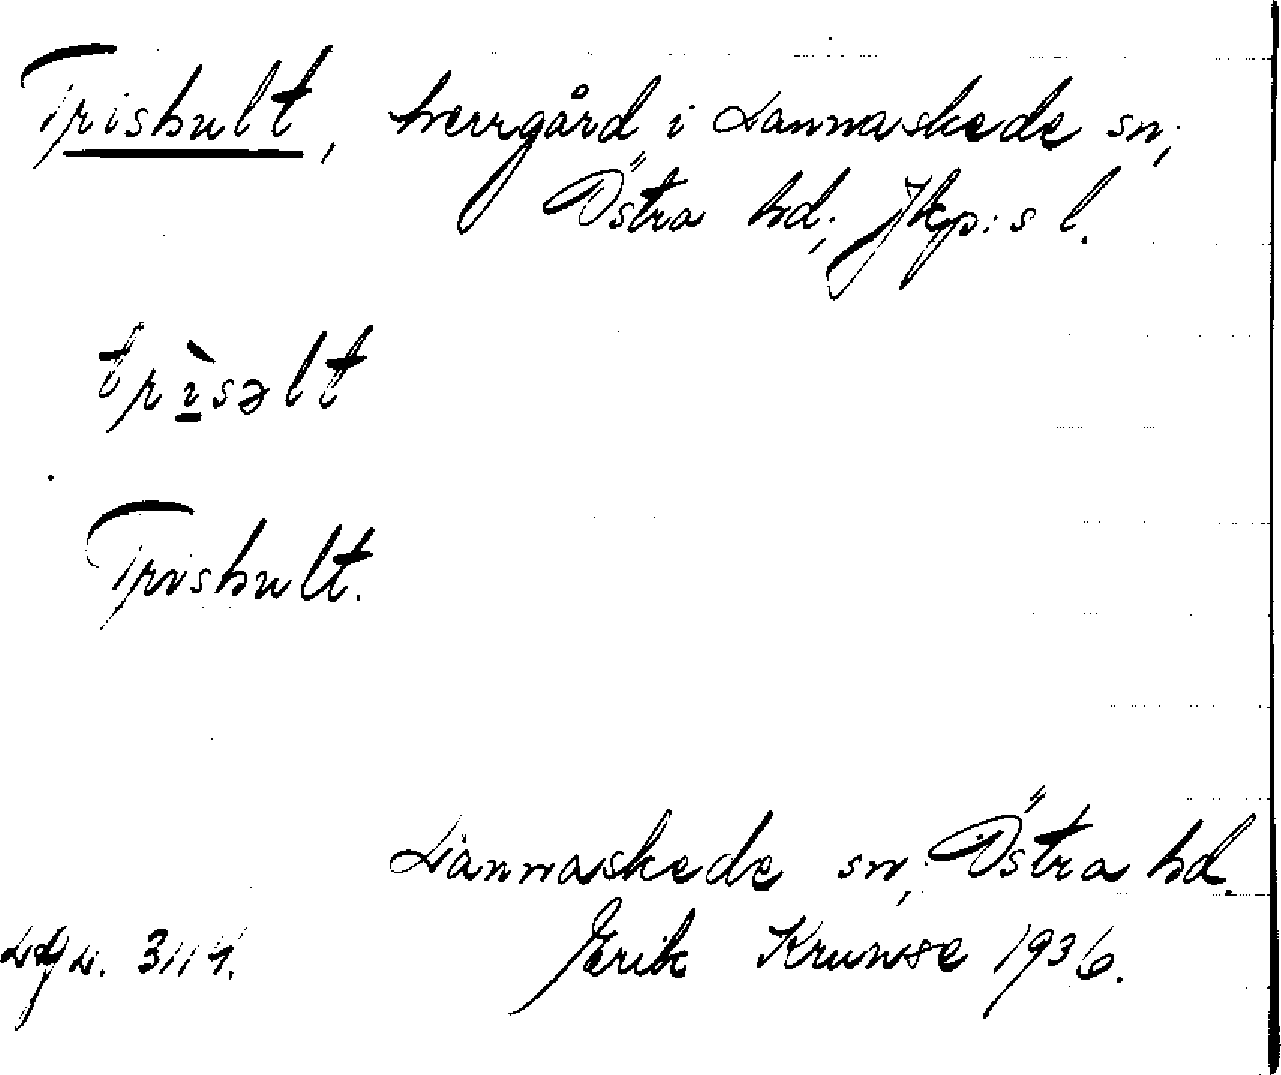 Trishult, herrgård i Lannaskede sn,
Östra hd, Jkp:s l.
trìsəlt
Trishult.
Lannaskede sn, Östra hd.
Erik Krunse 1936.